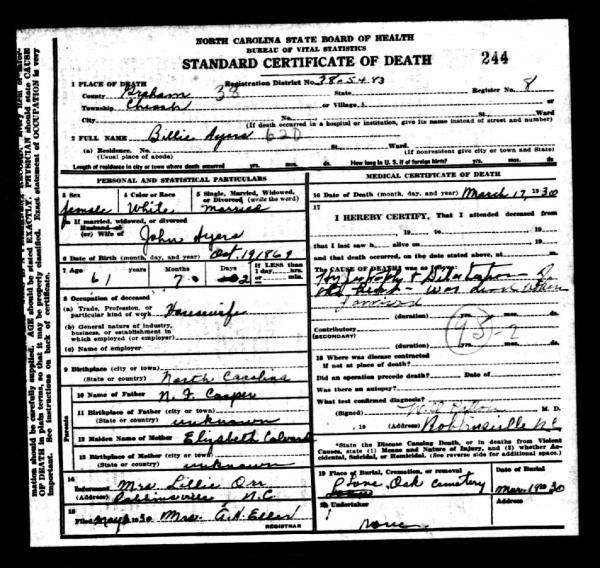 NORTH CAROLINA STATE BOARD OF HEALTH
BUREAU OF VITAL STATISTICS
STANDARD CERTIFICATE OF DEATH 244
1 PLACE OF DEATH Registration District No. 38-5483
County Graham 38 State Register No. 8
Township Cheoah or Village or
City No. St. Ward
(If death occurred in a hospital or institution, give its name instead of street and number)
2 FULL NAME Billie Ayers 620
(a) Residence. No. St. Ward
(Usual place of abode) (If nonresident give city or town and State)
Length of residence in city or town where death occurred yrs. mos. ds. How long in U. S. if of foreign birth? yrs. mos. ds.
PERSONAL AND STATISTICAL PARTICULARS
3 Sex 4 Color or Race 5 Single, Married, Widowed, or Divorced (write the word)
female White married
5a If married, widowed, or divorced
Husband of
(or) Wife of John Ayers
6 Date of Birth (month, day, and year) Oct. 19 1869
7 Age 61 years Months 7 Days 2 If LESS than 1 day, hrs. or min.
8 Occupation of deceased
(a) Trade, Profession, or particular kind of work Housewife
(b) General nature of industry, business, or establishment in which employed (or employer)
(c) Name of employer
9 Birthplace (city or town)
(State or country) North Carolina
Parents
10 Name of Father N. F. Cooper
11 Birthplace of Father (city or town)
(State or country) unknown
12 Maiden Name of Mother Elizabeth Calvard
13 Birthplace of Mother (city or town)
(State or country) unknown
14 Informant Mrs. Lillie Orr
(Address) Robbinsville N.C.
15 Filed 1930 Mrs. G. A. Eller
REGISTRAR
MEDICAL CERTIFICATE OF DEATH
16 Date of Death (month, day, and year) March 17, 1930
17
I HEREBY CERTIFY, That I attended deceased from
19 to 19
that I last saw h alive on 19
and that death occurred, on the date stated above, at m.
The CAUSE OF DEATH was as follows:
Hypertrophy & Dilatation
of the Heart - Was dead when
I arrived
(duration) yrs. mos. ds.
Contributory 95-2
(SECONDARY)
(duration) yrs. mos. ds.
18 Where was disease contracted
If not at place of death?
Did an operation precede death? Date of
Was there an autopsy?
What test confirmed diagnosis?
(Signed) M. D.
, 19 (Address) Robbinsville NC
*State the Disease Causing Death, or in deaths from Violent Causes, state (1) Means and Nature of Injury, and (2) whether Accidental, Suicidal, or Homicidal. (See reverse side for additional space.)
19 Place of Burial, Cremation, or removal Date of Burial
Lone Oak Cemetery Mar. 19 1930
20 Undertaker Address
none
mation should be carefully supplied. AGE should be stated EXACTLY. PHYSICIAN should state CAUSE
OF DEATH in plain terms, so that it may be properly classified. Exact statement of OCCUPATION is very
See instructions on back of certificate.